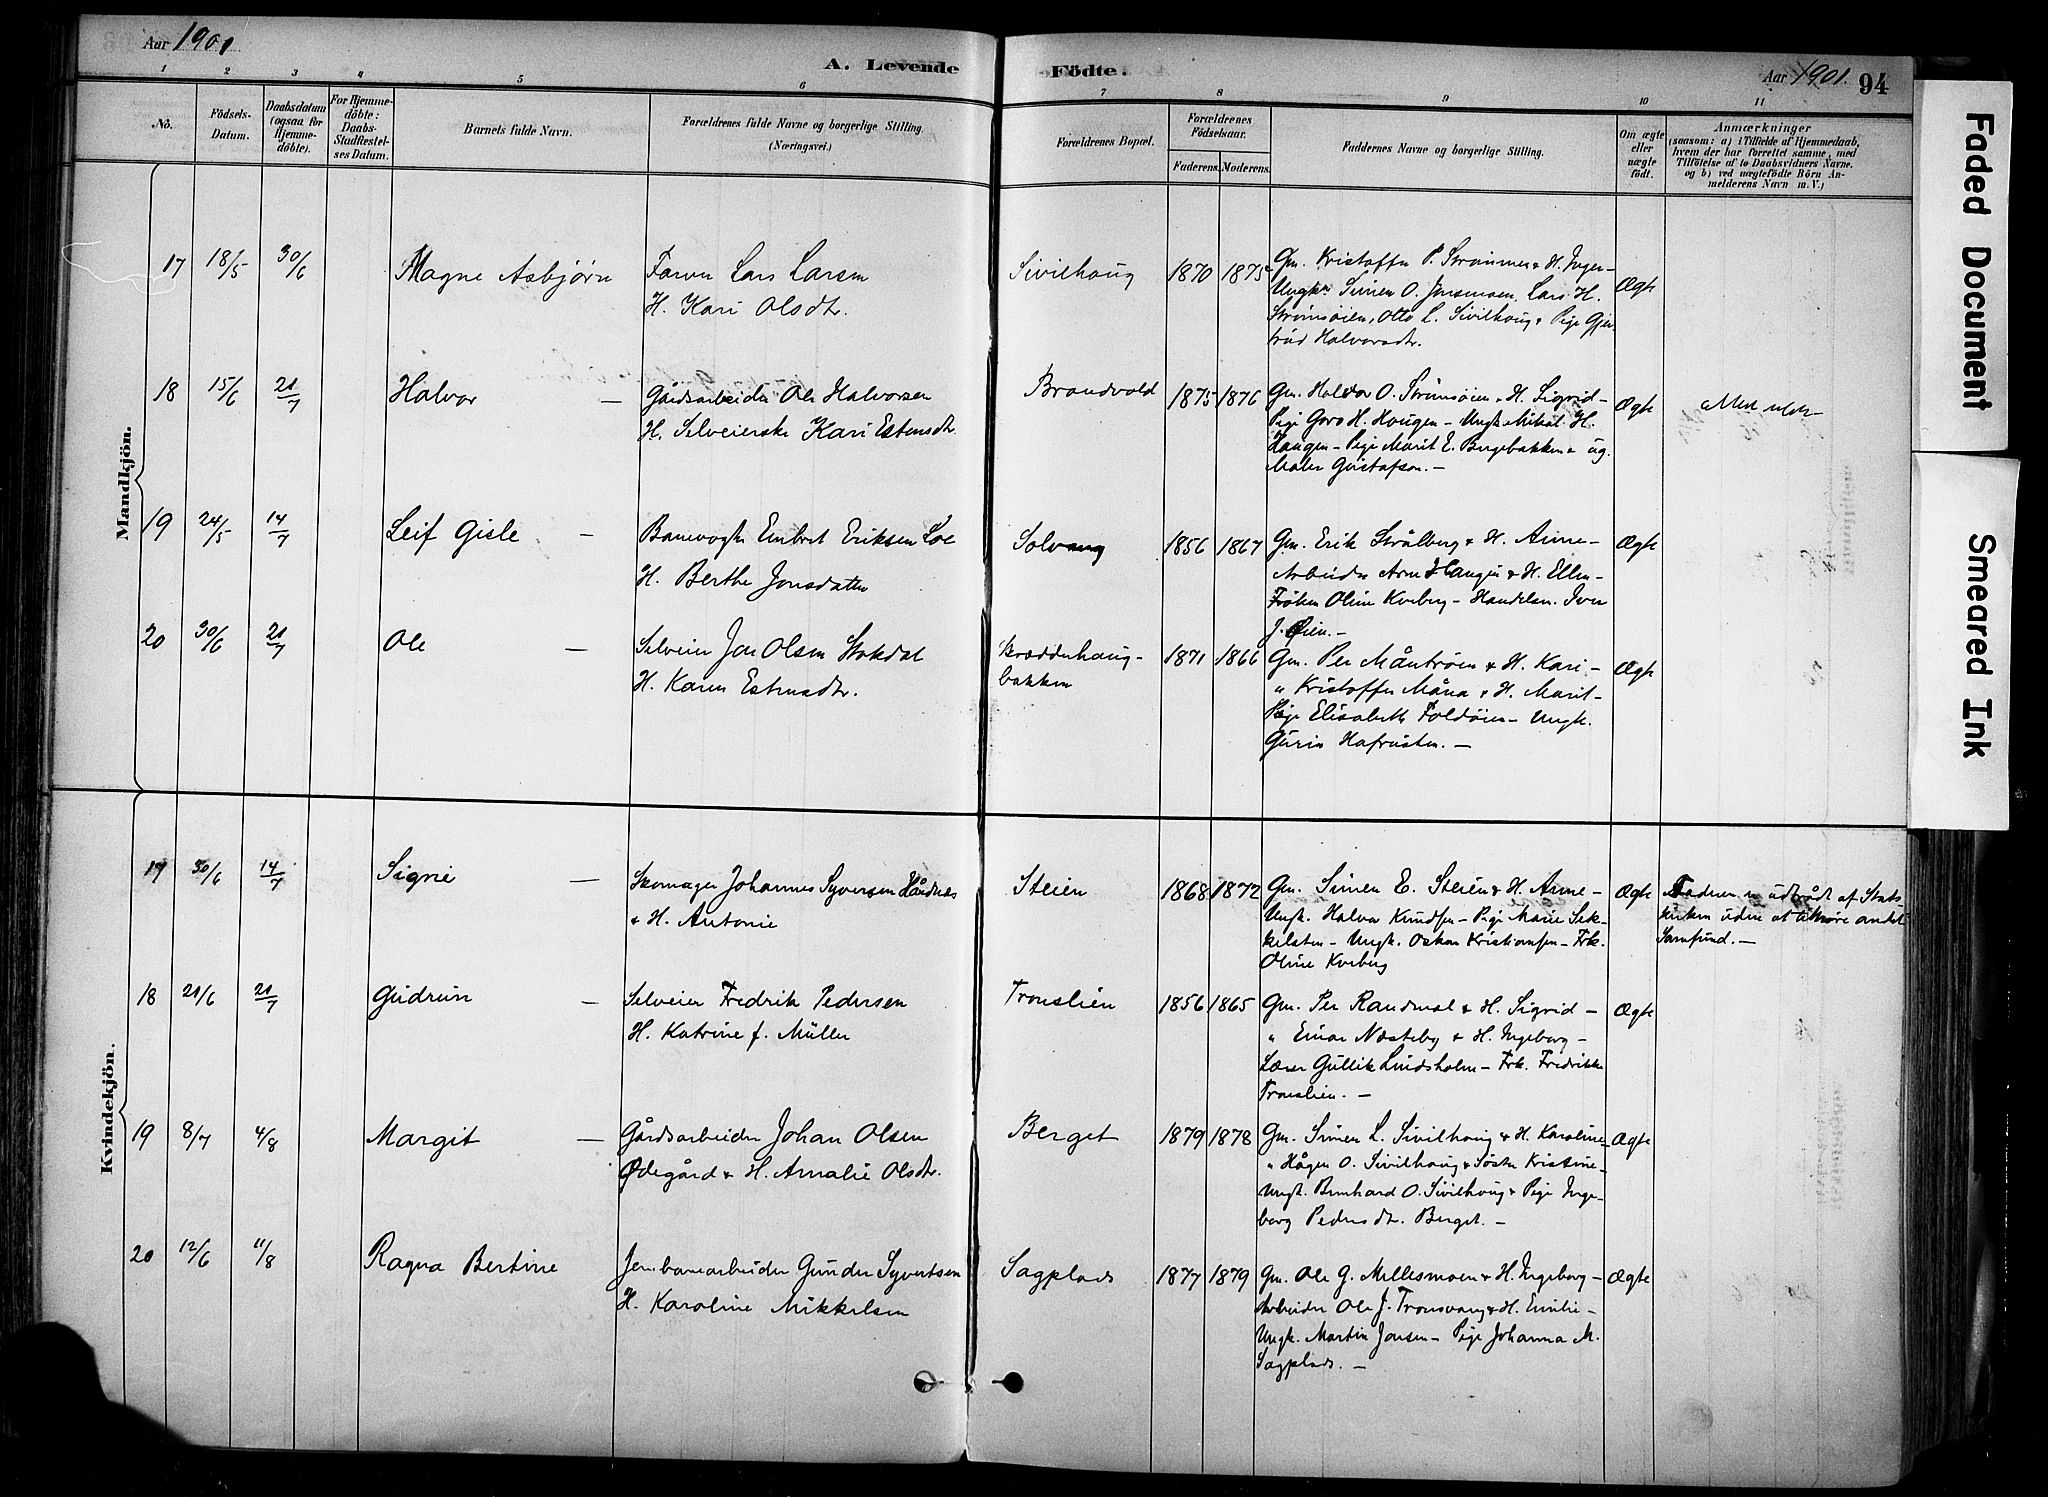 Aar 1901
A. Levende Födte.
Aar 1901. 94
1 2 3 4 5 6 7 8 9 10 11
No.
Födsels-Datum.
Daabsdatum (ogsaa for Hjemme-döbte).
For Hjemme-döbte: Daabs-Stadfestel-ses Datum.
Barnets fulde Navn.
Forældrenes fulde Navne og borgerlige Stilling. (Næringsvei.)
Forældrenes Bopæl.
Forældrenes Födselsaar.
Faderens. Moderens.
Faddernes Navne og borgerlige Stilling.
Om ægte eller uægte födt.
Anmærkninger
(saasom: a) i Tilfælde af Hjemmedaab,
hvem der har forrettet samme, med
Tilföielse af to Daabsvidners Navne.
og b) ved uægtefödte Börn An-
melderens Navn m. V.)
Mandkjön.
17 18/5 30/6 Magne Asbjørn
Farver Lars Larsen
H. Kari Olsdtr.
Sivilhaug 1870 1875
Gm. Kristoffer P. Strømmen & H. Inger –
Ungk. Simen O. Jensmoen, Lars H.
Strømsøien, Otto L. Sivilhaug & Pige Gjer-
trud Halvorsdtr.
Ægte
18 15/6 21/7 Halvor –
Gårdsarbeider Ole Halvorsen
H. Selveierske Kari Estensdtr.
Brandvold 1875 1876
Gm. Halvor O. Strømsøien & H. Sigrid –
Pige Goro H. Haugen – Ungk. Mikal H.
Haugen – Pige Marit E. Bergebakken & ug.
Maler Gustafson. –
Ægte
19 24/5 14/7 Leif Gisle –
Banevogter Embret Eriksen Loe
H. Berthe Jonsdatter
Solvang 1856 1867
Gm. Erik Strålberg & H. Anne –
Arbeider Arne Haugen & H. Ellen –
Frøken Oline Kveberg – Handelsm. Iver
J. Øien. –
Ægte
20 30/6 21/7 Ole –
Selveier Jon Olsen Stokdal
H. Karen Estensdtr.
Skrædderhaug-
bakken
1871 1866
Gm. Per Måntrøen & H. Kari –
" Kristoffer Måna & H. Marit –
Pige Elisabeth Foldøien – Ungk.
Gurin Hafrusten. –
Ægte
Kvindekjön.
17 30/6 14/7 Signe –
Skomager Johannes Syversen Hårdnes
& H. Antonie
Steien 1868 1872
Gm. Simen E. Steien & H. Anne –
Ungk. Halvor Knudsen – Pige Marie Sek-
kelsten – Ungk. Oskar Kristiansen – Frk.
Oline Kveberg
Ægte
Faderen er udtrådt af Stats-
kirken uden at tilhøre andet
Samfund. –
18 21/6 21/7 Gudrun –
Selveier Fredrik Pedersen
H. Katrine f. Müller
Tronslien 1856 1865
Gm. Per Randmæl & H. Sigrid –
" Einar Næsteby & H. Ingeborg –
Lærer Gullik Lindsholm – Frk. Fredrikke
Tronslien. –
Ægte
19 8/7 4/8 Margit –
Gårdsarbeider Johan Olsen
Ødegård & H. Amalie Olsdtr.
Berget 1879 1878
Gm. Simen L. Sivilhaug & H. Karoline –
" Hågen O. Sivilhaug & Søster Kristine –
Ungk. Bernhard O. Sivilhaug & Pige Inge-
borg Pedersdtr. Berget. –
Ægte
20 12/6 11/8 Ragna Bertine
Jernbanearbeider Gunder Syvertsen
H. Karoline Mikkelsen
Sagplads 1877 1879
Gm. Ole G. Mellesmoen & H. Ingeborg –
Arbeider Ole J. Tronsvang & H. Emilie –
Ungk. Martin Jensen – Pige Johanna M.
Sagplads. –
Ægte
Faded Document
Smeared Ink